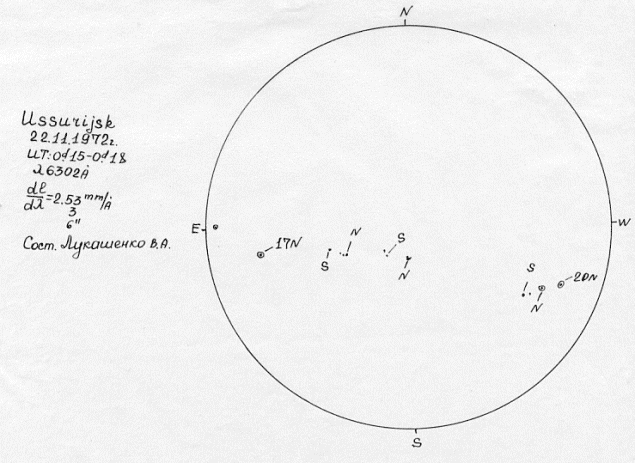 N
Ussurijsk
22.11.1972г.
UT:0d15-0d18
λ6302Å
dl/dλ=2.53 mm/Å
3
6"
Сост. Лукашенко В.А.
E
W
17N
S
N
S
N
S
N
20N
S